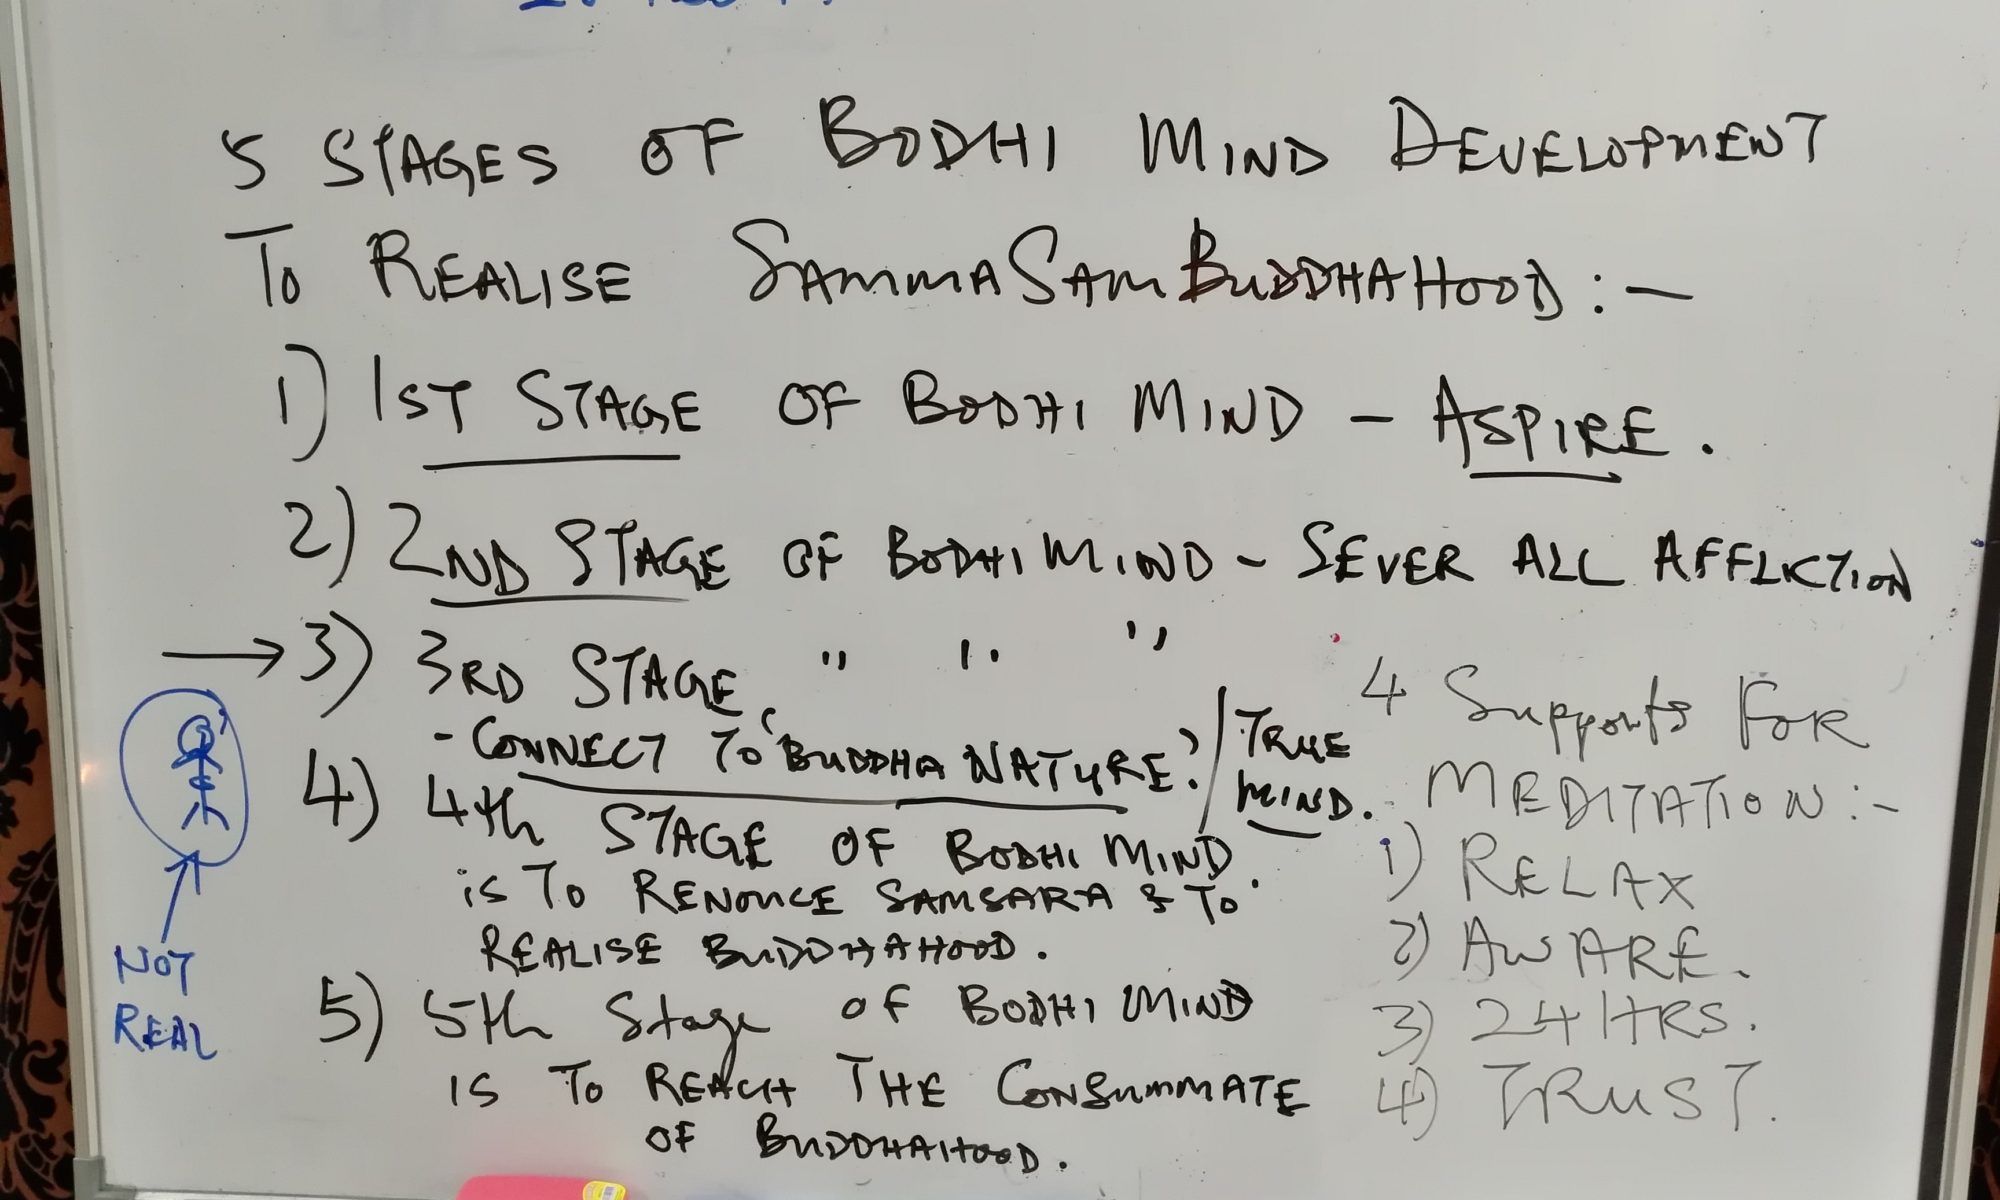 5 STAGES OF BODHI MIND DEVELOPMENT
TO REALISE SAMMASAMBUDDHAHOOD:-
1) 1ST STAGE OF BODHI MIND - ASPIRE.
2) 2ND STAGE OF BODHI MIND - SEVER ALL AFFLICTION
→ 3) 3RD STAGE " " "
- CONNECT TO 'BUDDHA NATURE'./ TRUE MIND.
4) 4th STAGE OF BODHI MIND
is To RENOUCE SAMSARA & TO
REALISE BUDDHAHOOD.
5) 5th Stage OF BODHI MIND
IS TO REACH THE CONSUMMATE
OF BUDDHAHOOD.
NOT
REAL
4 Supports FOR
MEDITATION:-
1) RELAX
2) AWARE.
3) 24 HRS.
4) TRUST.